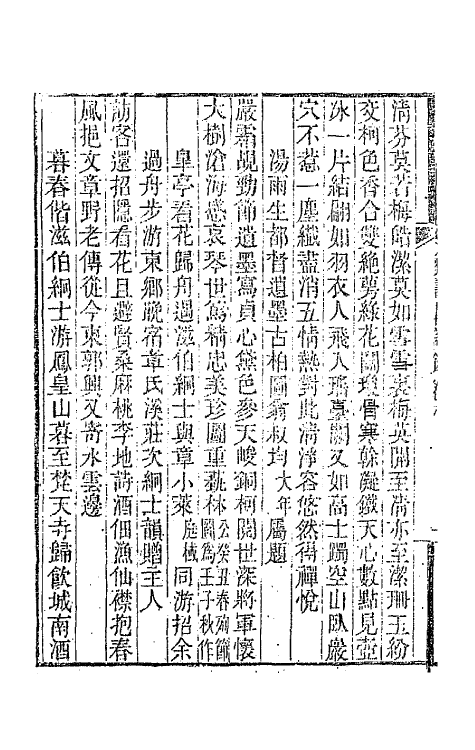 清芬莫若梅皓潔莫如雪雪裏梅英開至清亦至潔珊玉紛
交柯色香合雙絶剪綠花鬭瓊骨寒榦凝鐵天心數點見壺
冰一片結翩如羽衣人飛入瑤臺闕又如高士蹋空山臥巖
穴不惹一塵纖盡消五情熱對此清淨容悠然得禪悅
湯雨生都督遺墨古柏圖翁叔均大年屬題
嚴霜覘勁節遺墨寫貞心黛色參天峻銅柯閱世深將軍懷
大樹滄海感哀琴世篤精忠美珍圖重藝林公癸丑春殉節圖爲壬子秋作
皐亭看花歸舟過滋伯綱士與章小萊庭棫同游招余
過舟步游東鄉歲宿章氏溪莊次綱士韻贈主人
訪客還招隱看花且避賢桑麻桃李地詩酒佃漁仙襟抱春
風挹文章野老傳從今東郭興又寄水雲邊
暮春偕滋伯綱士游鳳皇山暮至梵天寺歸飲城南酒